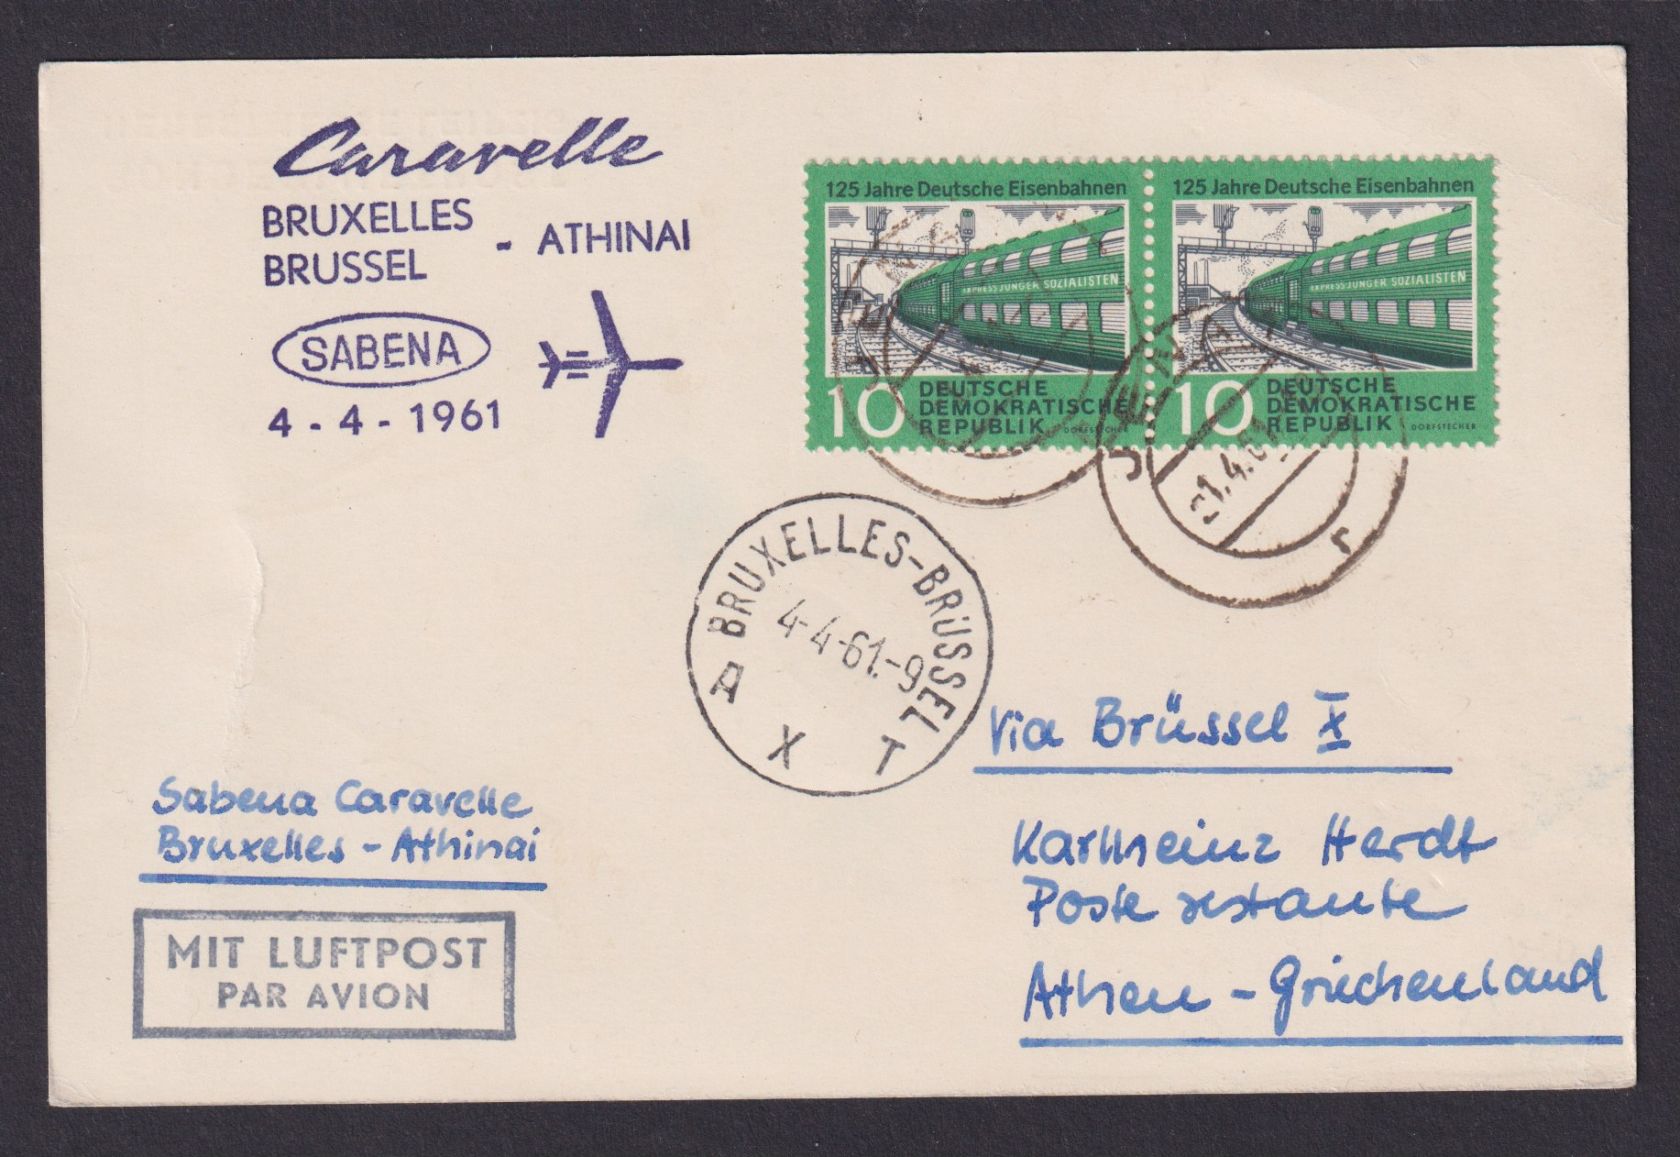 Caravelle
BRUXELLES
BRUSSEL
- ATHINAI
SABENA
4 - 4 - 1961
125 Jahre Deutsche Eisenbahnen
EXPRESS JUNGER SOZIALISTEN
10
DEUTSCHE
DEMOKRATISCHE
REPUBLIK
DORFSTECHER
125 Jahre Deutsche Eisenbahnen
EXPRESS JUNGER SOZIALISTEN
10
DEUTSCHE
DEMOKRATISCHE
REPUBLIK
DORFSTECHER
JENA
JENA
r
BRUXELLES-BRÜSSEL
4-4-61.-9
A X T
Via Brüssel X
Sabena Caravelle
Bruxelles - Athinai
Karlheinz Herdt
Poste restante
Athen - Griechenland
MIT LUFTPOST
PAR AVION